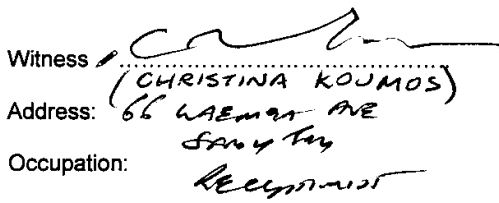 Witness
(CHRISTINA KOUMOS)
Address: 66 AVE
Sandy Bay
Occupation:
Receptionist